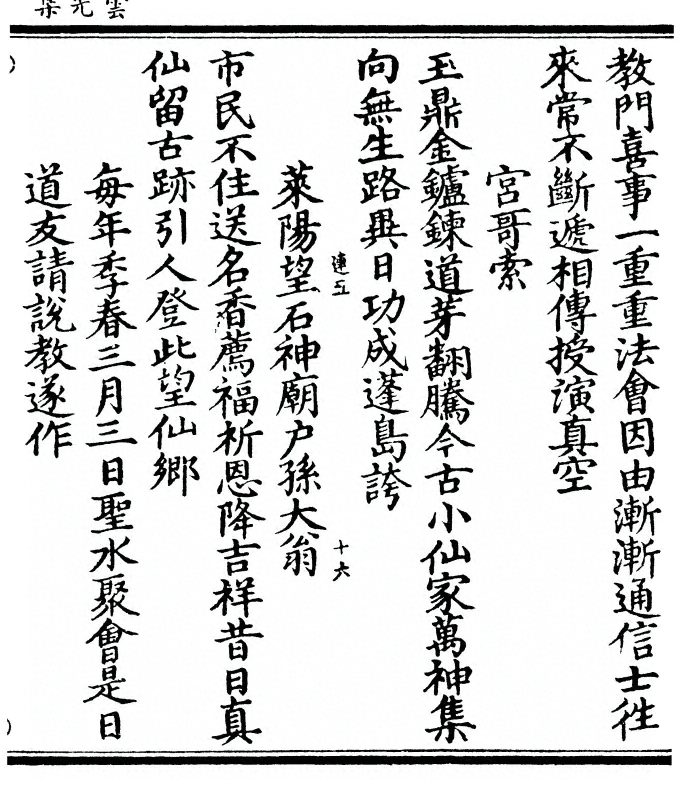 雲光集
教門喜事一重重法會因由漸漸通信士徃
來常不斷遞相傳授演真空
宮哥索
玉鼎金鑪鍊道芽翻騰今古小仙家萬神集
向無生路異日功成蓬島誇
連五
十六
萊陽望石神廟户孫大翁
市民不住送名香薦福祈恩降吉祥昔日真
仙留古跡引人登此望仙鄉
每年季春三月三日聖水聚會是日
道友請說教遂作